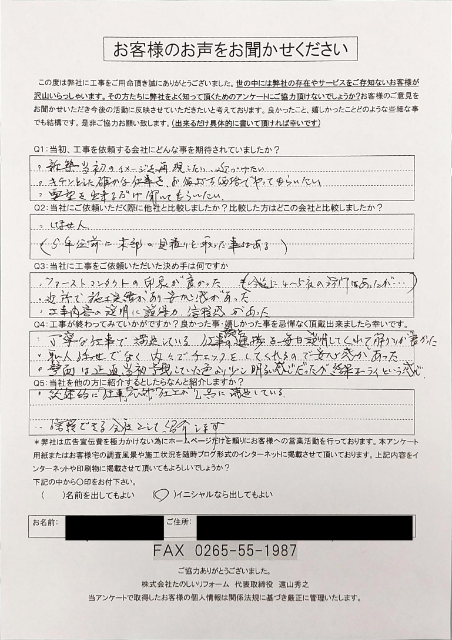 お客様のお声をお聞かせください
この度は弊社に工事をご用命頂き誠にありがとうございました。世の中には弊社の存在やサービスをご存知ないお客様が
沢山いらっしゃいます。その方たちに弊社をよく知って頂くためのアンケートにご協力頂けないでしょうか？お客様のご意見を
お聞かせいただき今後の活動に反映させていただきたいと考えております。良かったこと、嬉しかったことどのような些細な事
でも結構です。是非ご協力お願い致します。（出来るだけ具体的に書いて頂ければ幸いです）
Q1:当初、工事を依頼する会社にどんな事を期待されていましたか？
新築当初のイメージを再現したい
キチンとした確かな仕事を お値打ち価格でやってもらいたい
要望を出来るだけ聞いてもらいたい
Q2:当社にご依頼いただく際に他社と比較しましたか？比較した方はどこの会社と比較しましたか？
いません
（5年位前に 見積りを取った事はある）
Q3:当社に工事をご依頼いただいた決め手は何ですか
ファーストコンタクトの印象が良かった
近所で施工実績があり安心感があった
工事内容の説明に説得力、信頼感があった
Q4:工事が終わってみていかがですか？良かった事・嬉しかった事を忌憚なく頂戴出来ましたら幸いです。
丁寧な仕事で満足している 毎日説明してくれて解り易く良かった
職人任せでなく 社内でチェックをしてくれるので安心感があった
壁面は正直当初予想していた色より少し明るい感じだったが 結果オーライという感じ
Q5:当社を他の方に紹介するとしたらなんと紹介しますか？
満足している
信頼できる会社として紹介します
＊弊社は広告宣伝費を極力かけない為にホームページだけを頼りにお客様への営業活動を行っております。本アンケート
用紙またはお客様宅の調査風景や施工状況を随時ブログ形式のインターネットに掲載させて頂いております。上記内容をイ
ンターネットや印刷物に掲載させて頂いてもよろしいでしょうか？
下記の中から〇印をお付下さい。
（　）名前を出してもよい （〇）イニシャルなら出してもよい
お名前： ご住所：
FAX 0265-55-1987
ご協力ありがとうございました。
株式会社たのしいリフォーム 代表取締役 遠山秀之
当アンケートで取得したお客様の個人情報は関係法規に基づき厳正に管理いたします。